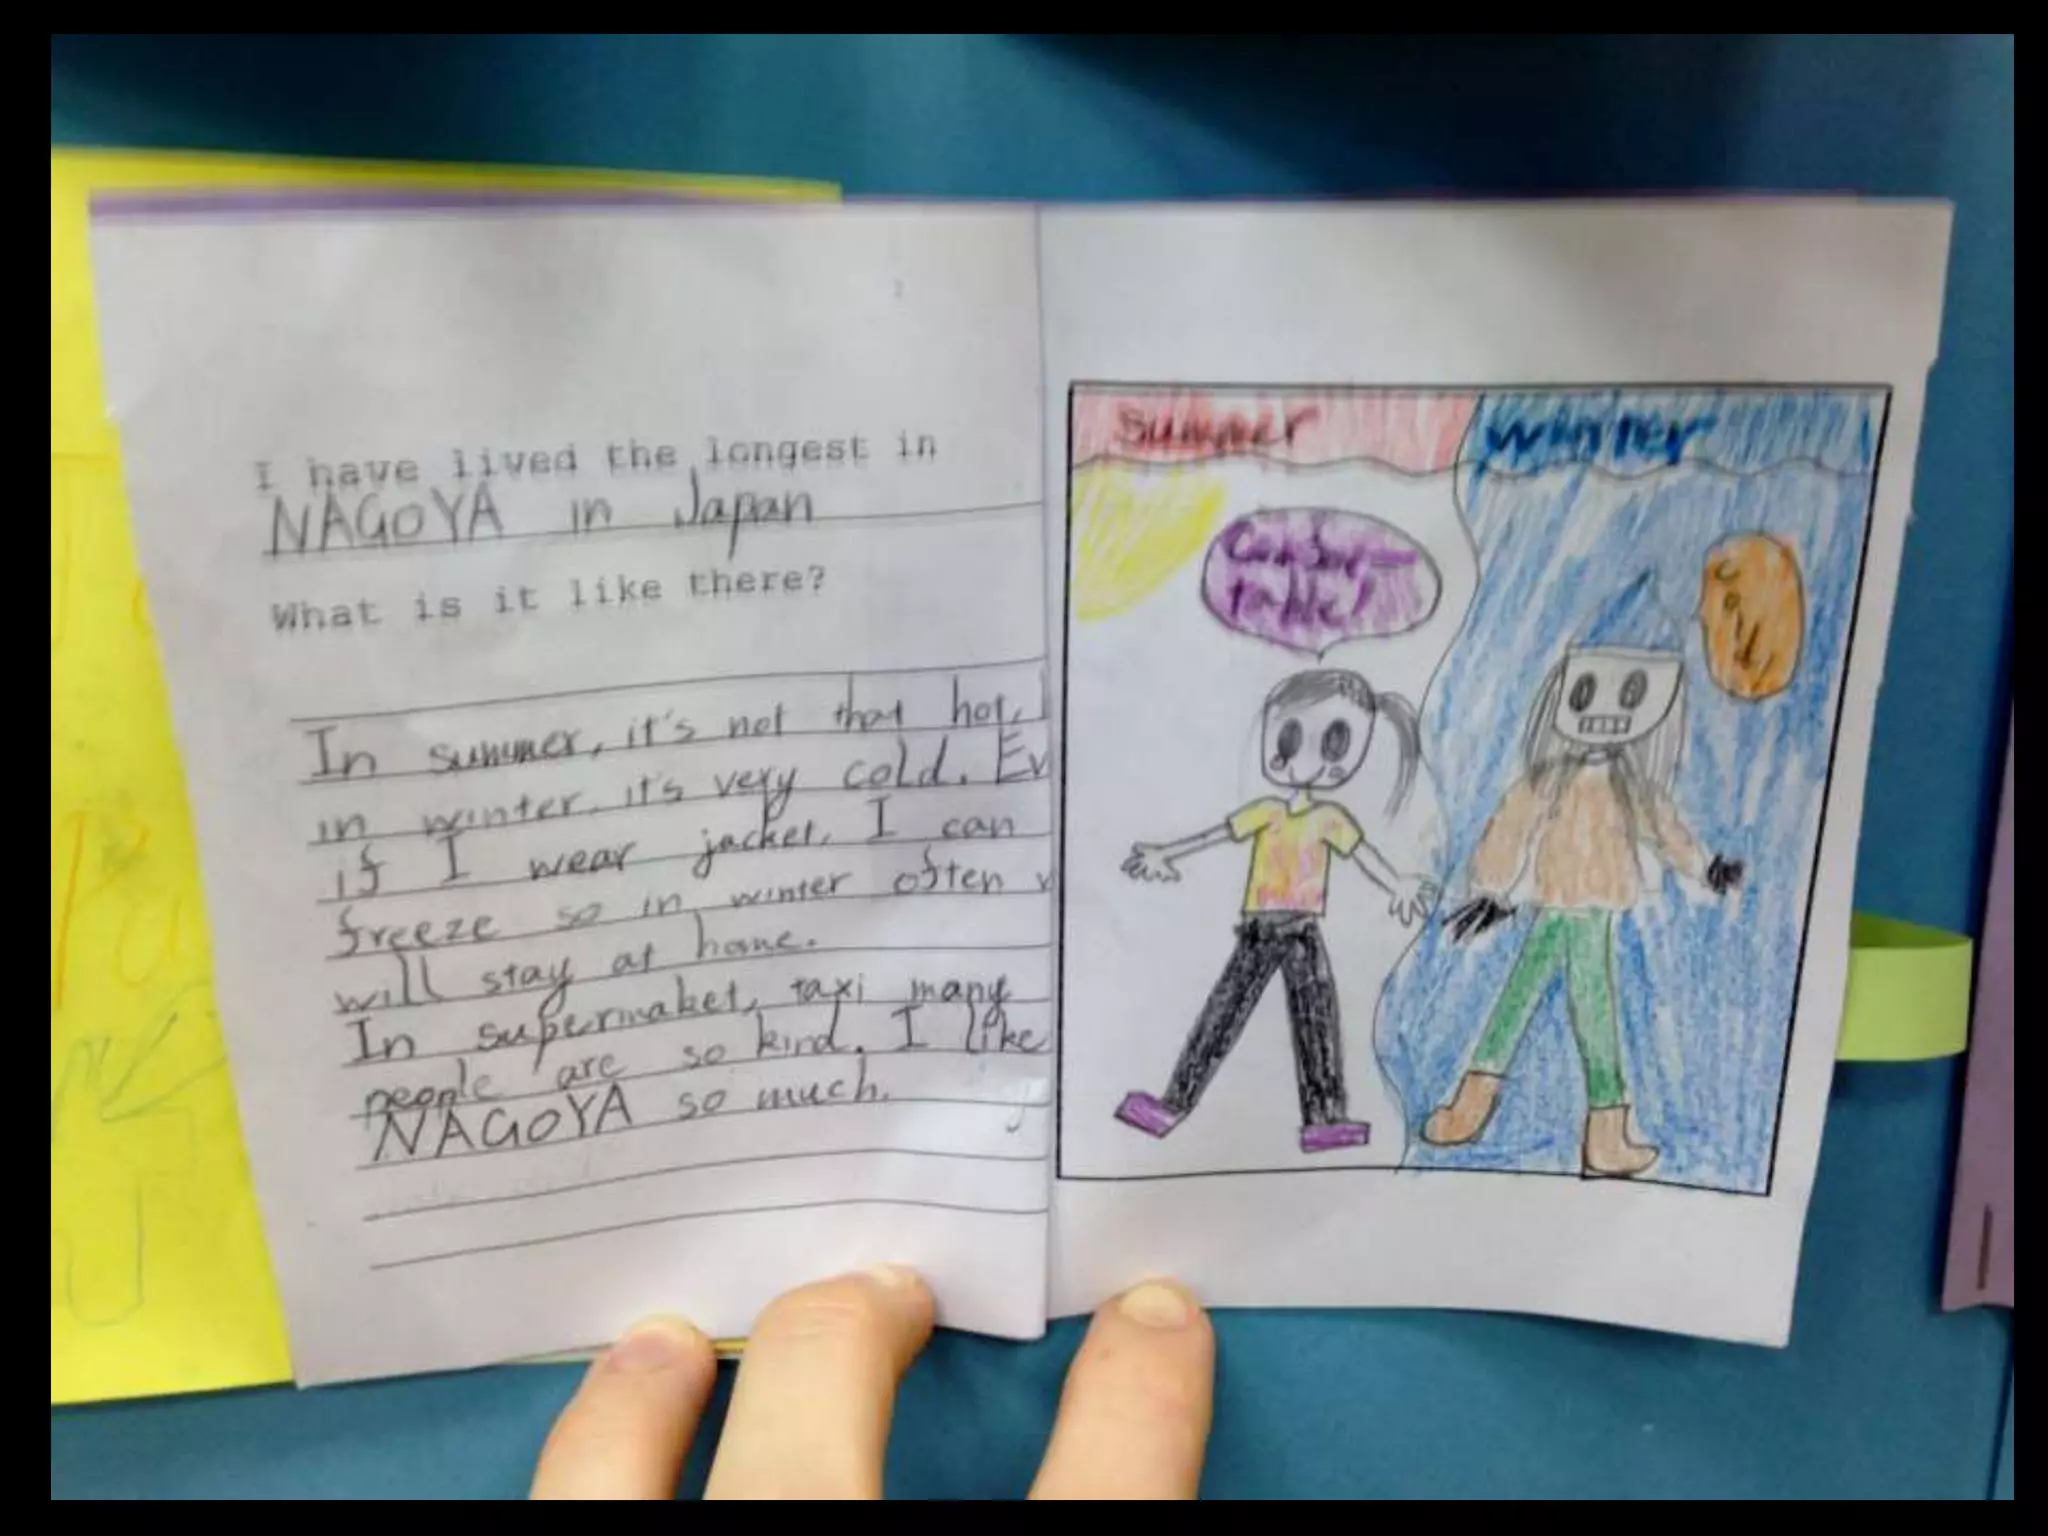 I have lived the longest in
NAGOYA in Japan
What is it like there?
In summer, it's not that hot,
in winter, it's very cold. Ev
if I wear jacket, I can
freeze so in winter often
will stay at home.
In supermaket, taxi many
people are so kind. I like
NAGOYA so much.
Summer
winter
Comfor-
table!
Cold!